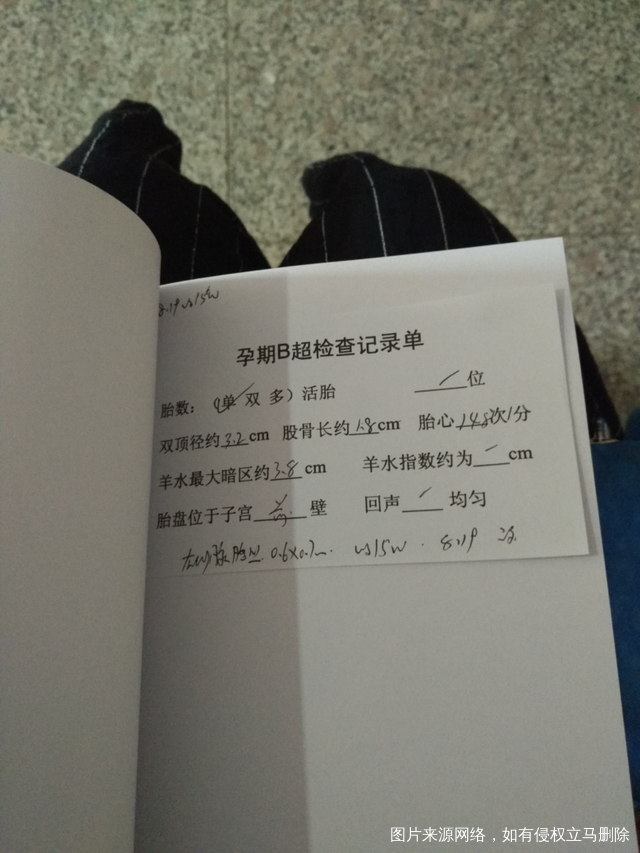 8.19 us15w
孕期B超检查记录单
胎数：（单✓双 多）活胎 / 位
双顶径约3.2cm 股骨长约1.8cm 胎心148次/分
羊水最大暗区约3.8cm 羊水指数约为 / cm
胎盘位于子宫前壁 回声 / 均匀
0.6x0.7 us15w. 8.19
图片来源网络，如有侵权立马删除